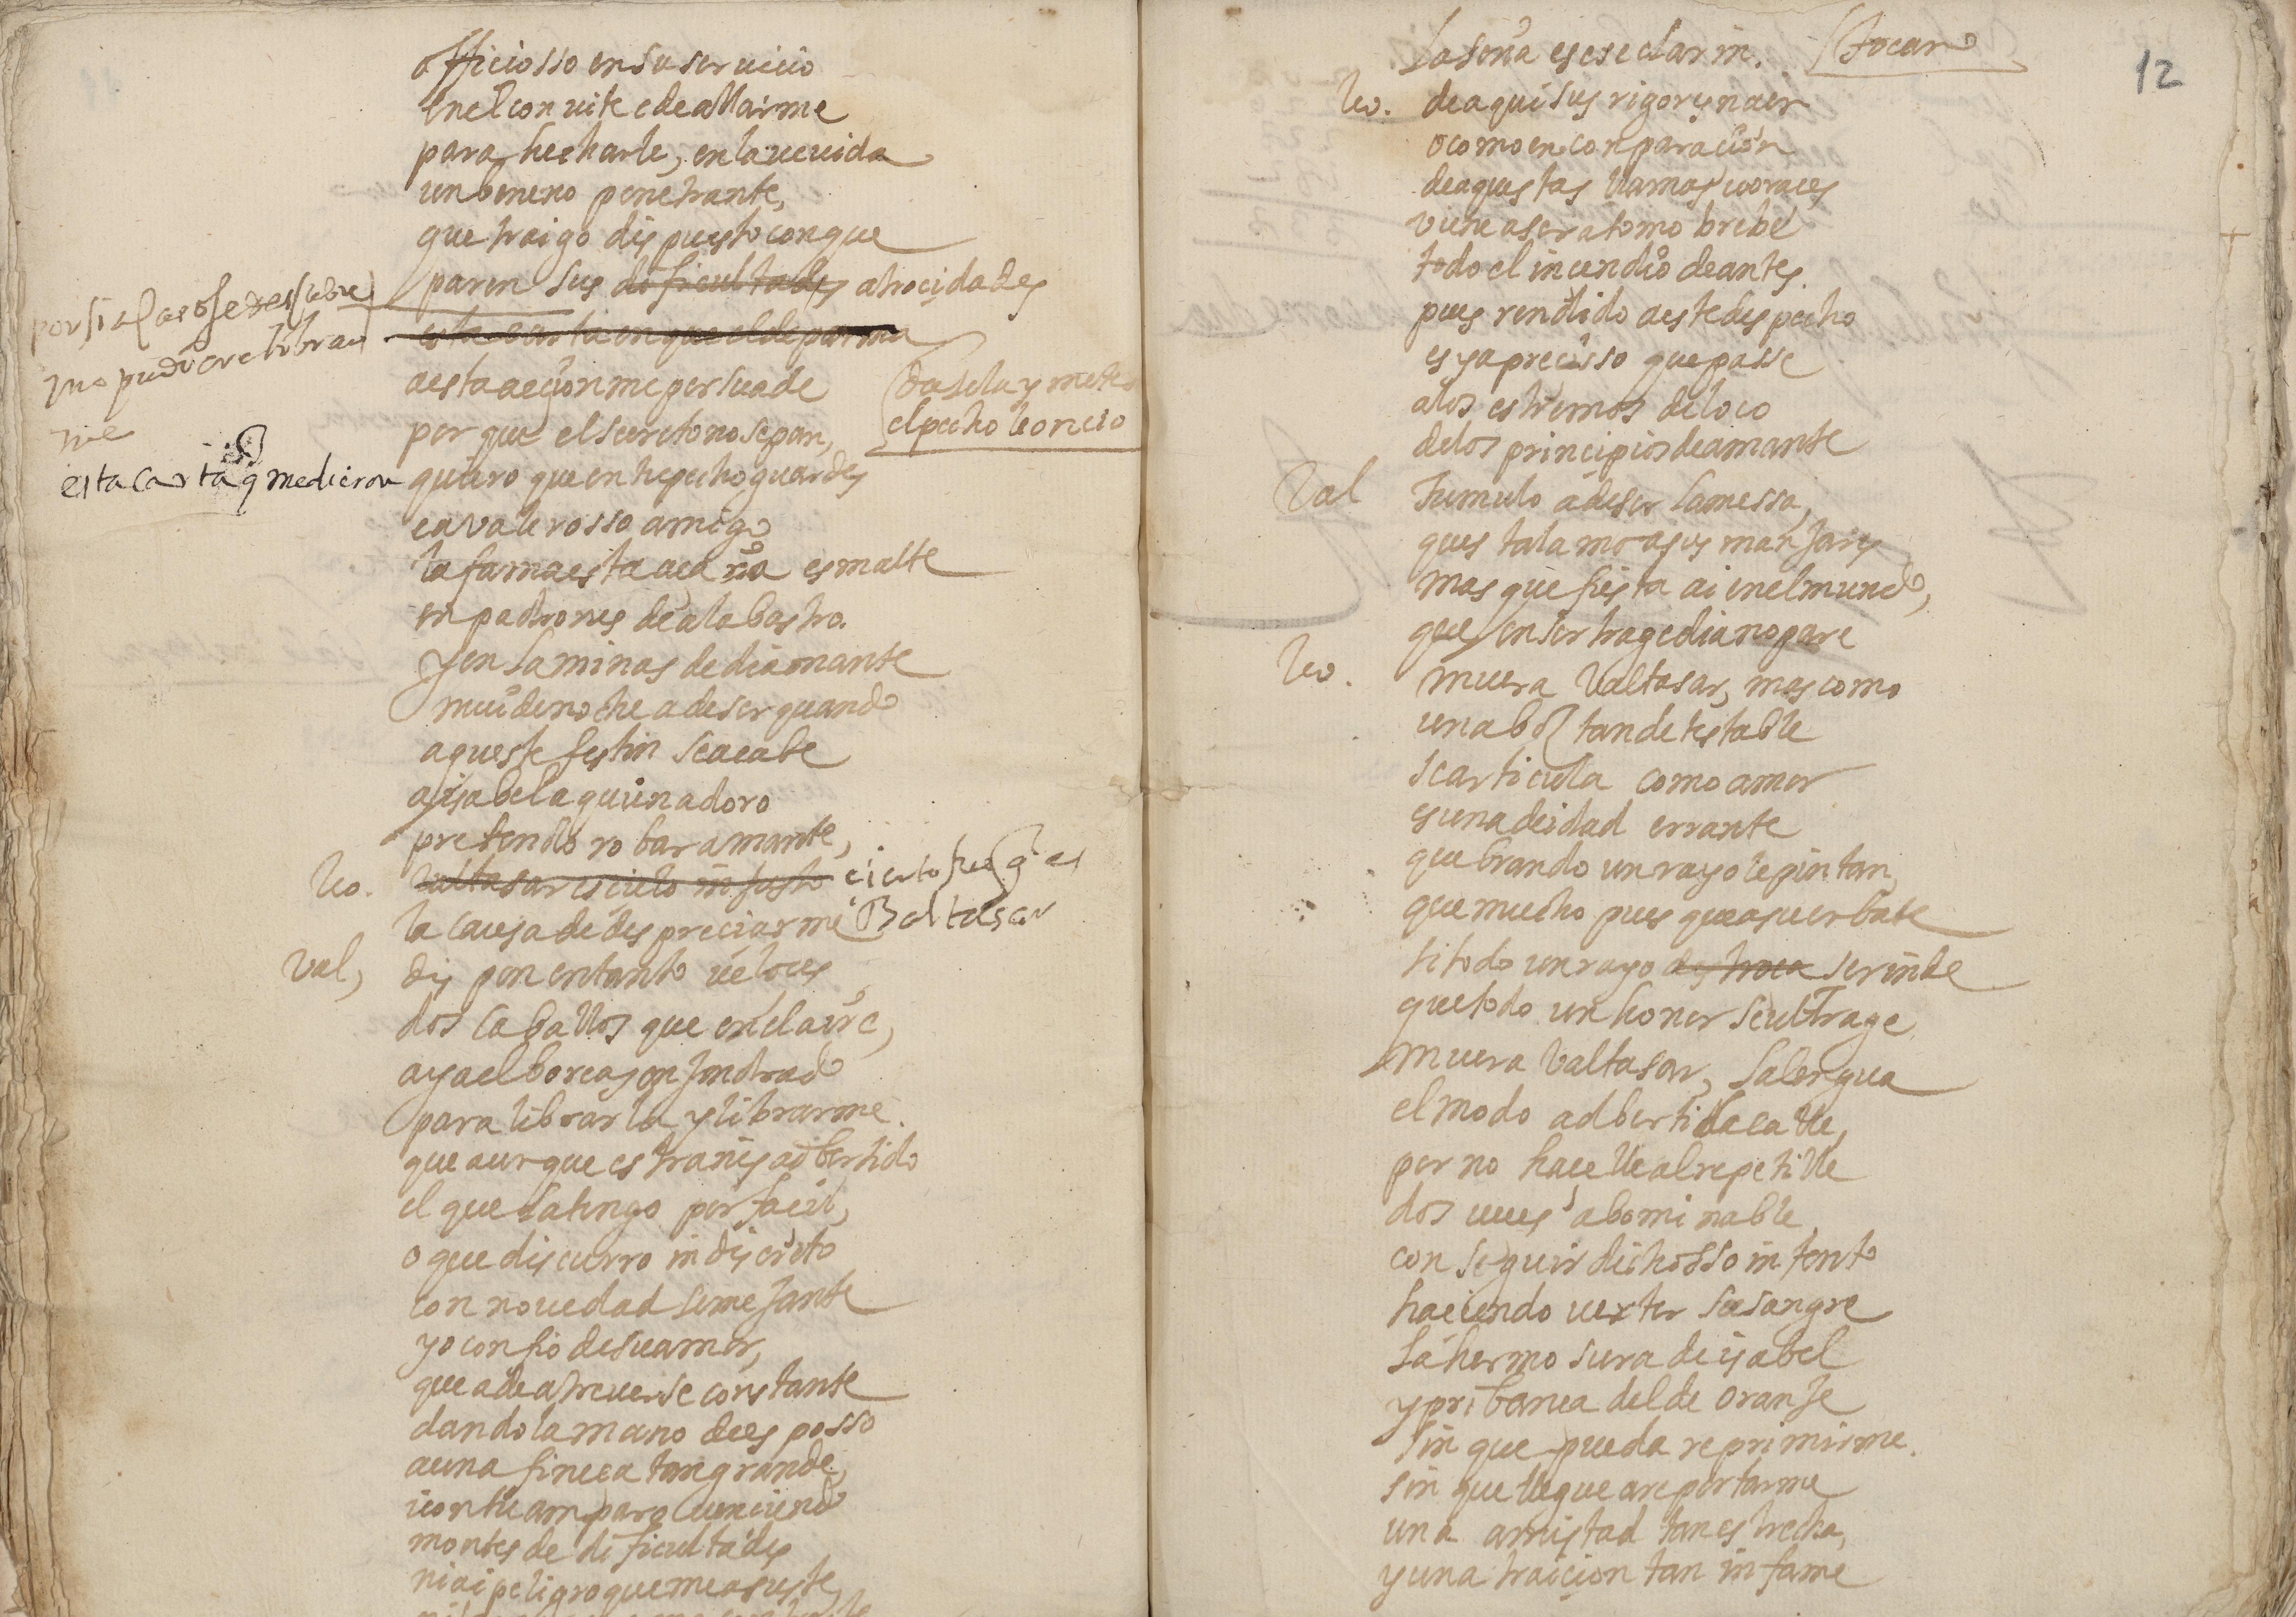 officiosso en su seruicio
en el conuite e de allarme
para hecharle, en la ueuida
un beneno penetrante,
que traigo dispuesto con que
paren sus dificultades atrocidades
por si el caso se descubre
no pudiere librar
me
esta carta en que el de parma
esta carta q me dieron
a esta accion me persuade
Dasela y mete
el pecho leoncio
por que el secreto no sepan,
quiero que en tu pecho guardes
ea valerosso amigo
la fama esta accion esmalte
en padrones de alabastro.
y en laminas de diamante
mui de noche a de ser quando
aqueste festin se acabe
a isabela quien adoro
pretendo robar amante,
leo. valtasar es cielo injusto cierto fue q es
la causa de despreciarme Baltasar
Val, dispon entanto ueloces
dos caballos que en el aire,
aya el boreas engendrado
para librarla y librarme.
que aunque estrañes adbertido
el que la tengo por facil,
o que discurro indiscreto
con nouedad semejante
yo confio de su amor,
que a de atreuerse constante
dando la mano de esposso
a una fineça tan grande,
i con tu amparo uenciendo
montes de dificultades
ni ai peligro que me asuste,
12
La seña es ese clarin. Tocan
leo. de aqui sus rigores naçen
o como en conparacion
de aquestas llamas uoraces
viene a ser atomo brebe
todo el incendio de antes.
pues rendido a este despecho
es ya precisso que passe
a los estremos de loco
de los principios de amante
Val Tumulo a de ser la messa,
que es talamo a sus manjares
mas que fiesta ai en el mundo,
que en ser tragedia no pare
leo. muera Valtasar, mas como
una boz tan detestable
se articula como amor
es una deidad errante
que brando un rayo le pintan,
que mucho pues que a su enbate
si todo un rayo destroca se rinde
que todo un honor se ultrage
muera Valtasar, la lengua
el modo adbertida calle,
por no hacelle al repetille
dos ueces abominable
conseguir dichosso intento
haciendo uerter su sangre
la hermosura de isabel
y pribança del de oranje
sin que pueda reprimirme.
sin que llegue a reportarme
una amistad tan estrecha,
y una traicion tan infame